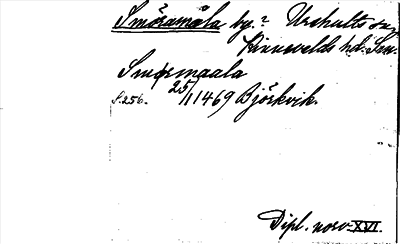 Smöramåla by.? Urshults sn,
Kinnevalds hd. Sm.
Smörmaala
s.256. 25/1 1469 Björkvik.
Dipl. norv. XVI.